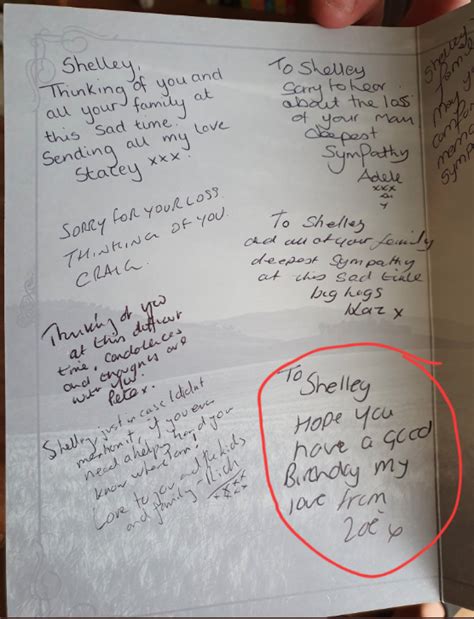 Shelley,
Thinking of you and
all your family at
this sad time.
Sending all my love
Stacey xxx.
SORRY FOR YOUR LOSS
THINKING OF YOU.
CRAIG.
Thinking of you
at this difficult
time, condolences
and thoughts are
with you.
Peter.
Shelley just in case I didnt
mention it, if you ever
need a helping hand you
know where I am!
Love to you and the kids
and family - Rich
xxxx
To Shelley
Sorry to hear
about the loss
of your Mam
deepest
Sympathy
Adele
xxx
xx
x
To Shelley
and all of your family
deepest sympathy
at this sad time
big hugs
Kaz x
To Shelley
HOPE YOU
have a good
Birthday my
love from
Zoë x
Shelley